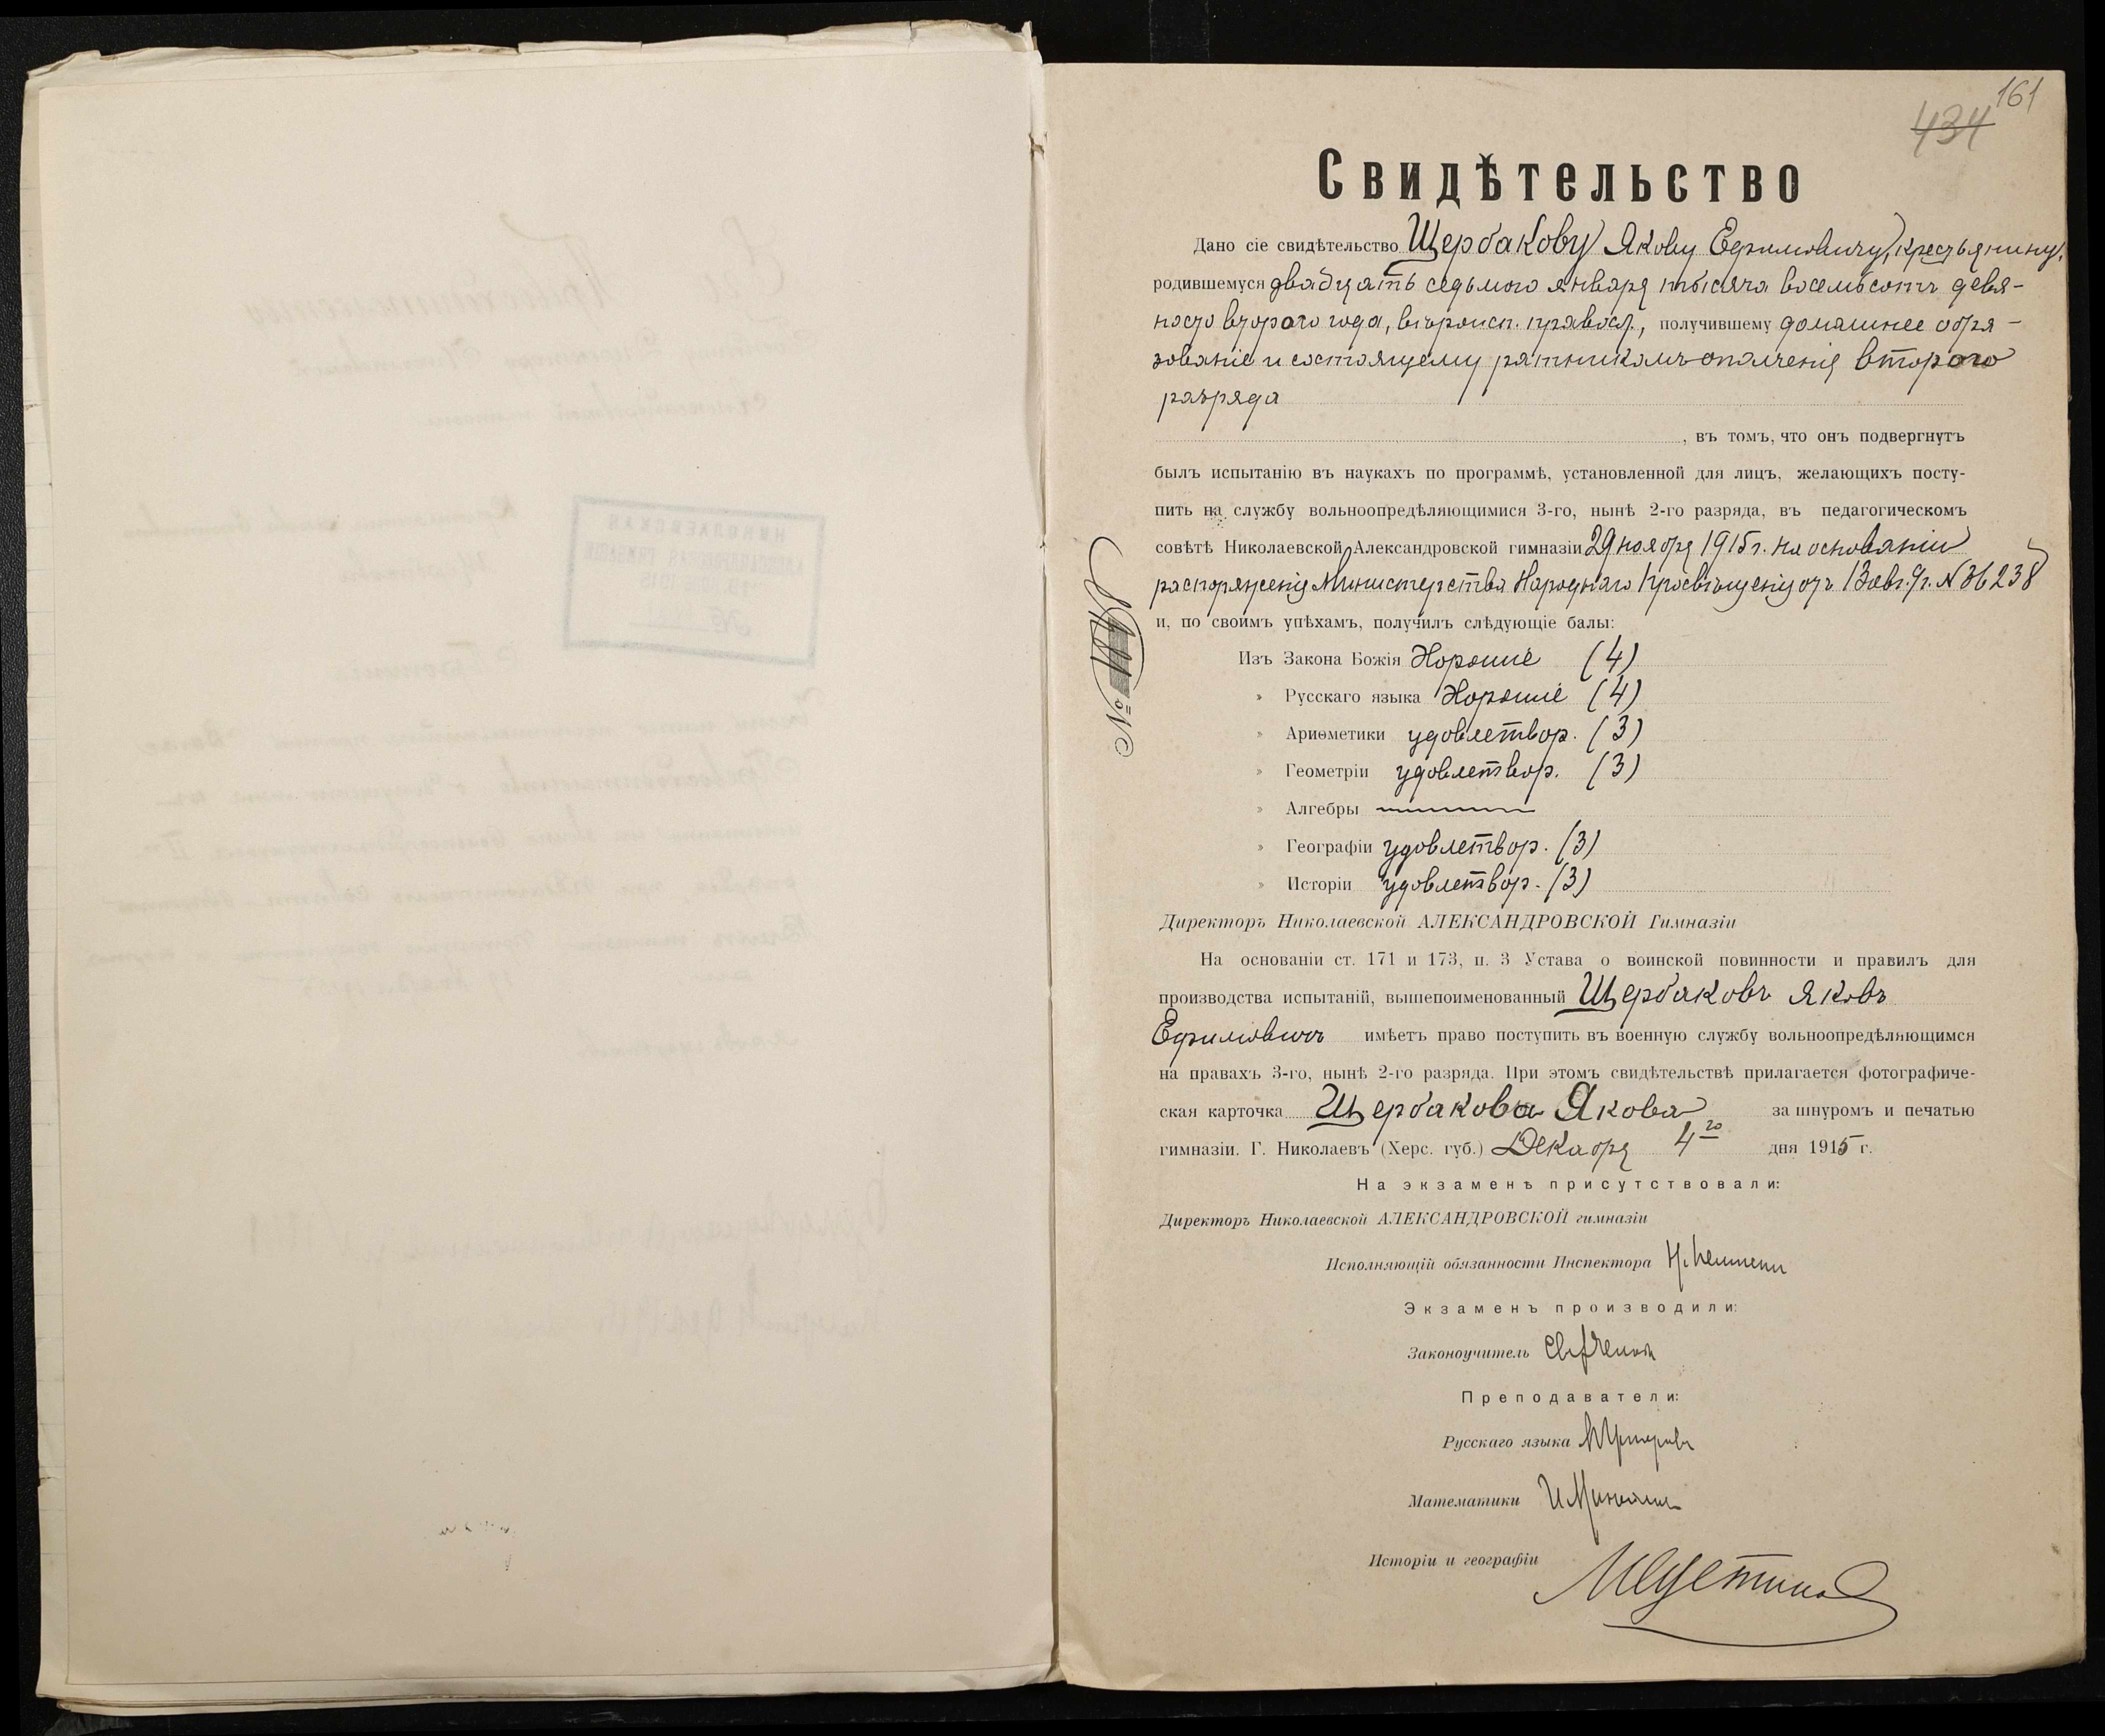 161
434
Свидѣтельство
Дано сіе свидѣтельство Щербакову Якову Ефимовичу, крестьянину,
родившемуся двадцать седьмого января тысяча восемьсотъ девя-
носто второго года, вѣроисп. правосл., получившему домашнее обра-
зованіе и состоящему ратникомъ ополченія второго
разряда
, въ томъ, что онъ подвергнутъ
былъ испытанію въ наукахъ по программѣ, установленной для лицъ, желающихъ посту-
пить на службу вольноопредѣляющимися 3-го, нынѣ 2-го разряда, въ педагогическомъ
совѣтѣ Николаевской Александровской гимназіи 29 ноября 1915 г. на основаніи
распоряженія Министерства Народнаго Просвѣщенія отъ 13 авг. 9г. № 36238
и, по своимъ упѣхамъ, получилъ слѣдующіе балы:
Изъ Закона Божія Хорошіе (4)
» Русскаго языка Хорошіе (4)
» Ариѳметики удовлетвор. (3)
» Геометріи удовлетвор. (3)
» Алгебры
» Географіи удовлетвор. (3)
» Исторіи удовлетвор. (3)
№
Директоръ Николаевской АЛЕКСАНДРОВСКОЙ Гимназіи
На основаніи ст. 171 и 173, п. 3 Устава о воинской повинности и правилъ для
производства испытаній, вышепоименованный Щербаковъ Яковъ
Ефимовичъ имѣетъ право поступить въ военную службу вольноопредѣляющимся
на правахъ 3-го, нынѣ 2-го разряда. При этомъ свидѣтельствѣ прилагается фотографиче-
ская карточка Щербакова Якова за шнуромъ и печатью
гимназіи. Г. Николаевъ (Херс. губ.) Декабря 4го дня 1915 г.
На экзаменѣ присутствовали:
Директоръ Николаевской АЛЕКСАНДРОВСКОЙ гимназіи
Исполняющій обязанности Инспектора
Экзаменъ производили:
Законоучитель
Преподаватели:
Русскаго языка
Математики
Исторіи и географіи